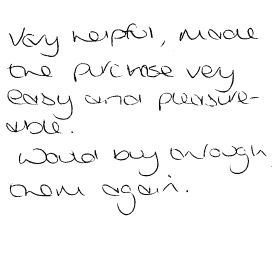 Very helpful, made
the purchase very
easy and pleasure-
able.
Would buy through
them again.